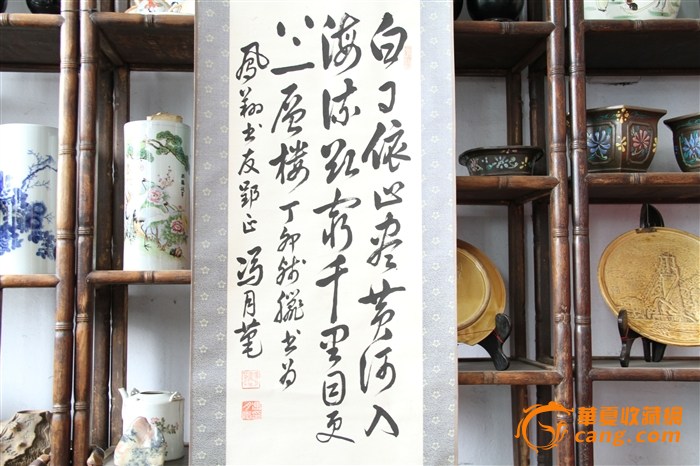 白日依山尽黄河入
海流欲穷千里目更
上一层楼 丁卯秋月书为
凤翔书友郢正 冯月庵
華夏收藏網
cang.com